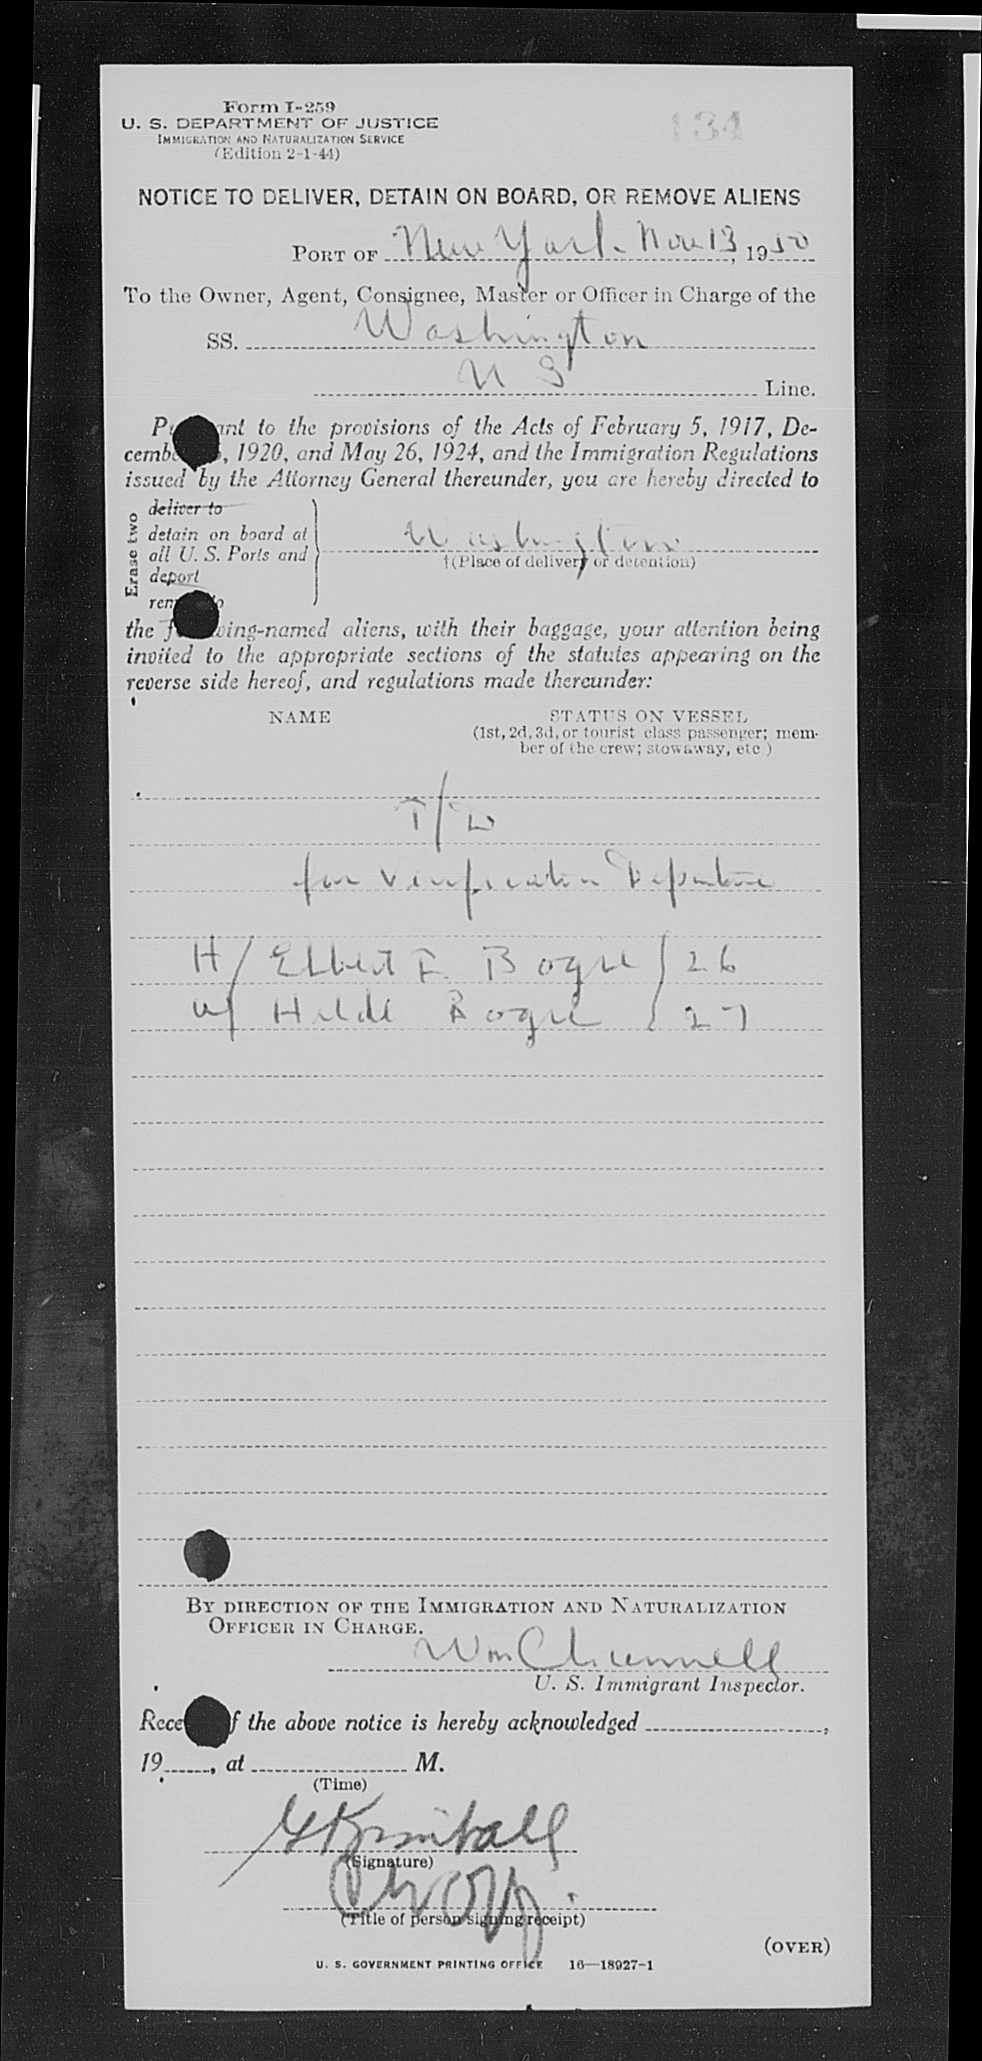 Form I-259
U. S. DEPARTMENT OF JUSTICE
IMMIGRATION AND NATURALIZATION SERVICE
(Edition 2-1-44)
134
NOTICE TO DELIVER, DETAIN ON BOARD, OR REMOVE ALIENS
PORT OF New York. Nov 13, 1950
To the Owner, Agent, Consignee, Master or Officer in Charge of the
SS. Washington
U S Line.
P ant to the provisions of the Acts of February 5, 1917, De-
cemb , 1920, and May 26, 1924, and the Immigration Regulations
issued by the Attorney General thereunder, you are hereby directed to
Erase two
deliver to
detain on board at
all U. S. Ports and
deport
rem o
Washington
†(Place of delivery or detention)
the f wing-named aliens, with their baggage, your attention being
invited to the appropriate sections of the statutes appearing on the
reverse side hereof, and regulations made thereunder:
NAME
STATUS ON VESSEL
(1st, 2d, 3d, or tourist class passenger; mem-
ber of the crew; stowaway, etc.)
T/D
for Verification Departure
H/ Elbert F. Bogle / 26
W/ Hilde Bogle / 27
BY DIRECTION OF THE IMMIGRATION AND NATURALIZATION
OFFICER IN CHARGE.
Wm
U. S. Immigrant Inspector.
Rece f the above notice is hereby acknowledged ,
19 , at M.
(Time)
G Kimball
(Signature)
(Title of person signing receipt)
(OVER)
U. S. GOVERNMENT PRINTING OFFICE 16—18927-1